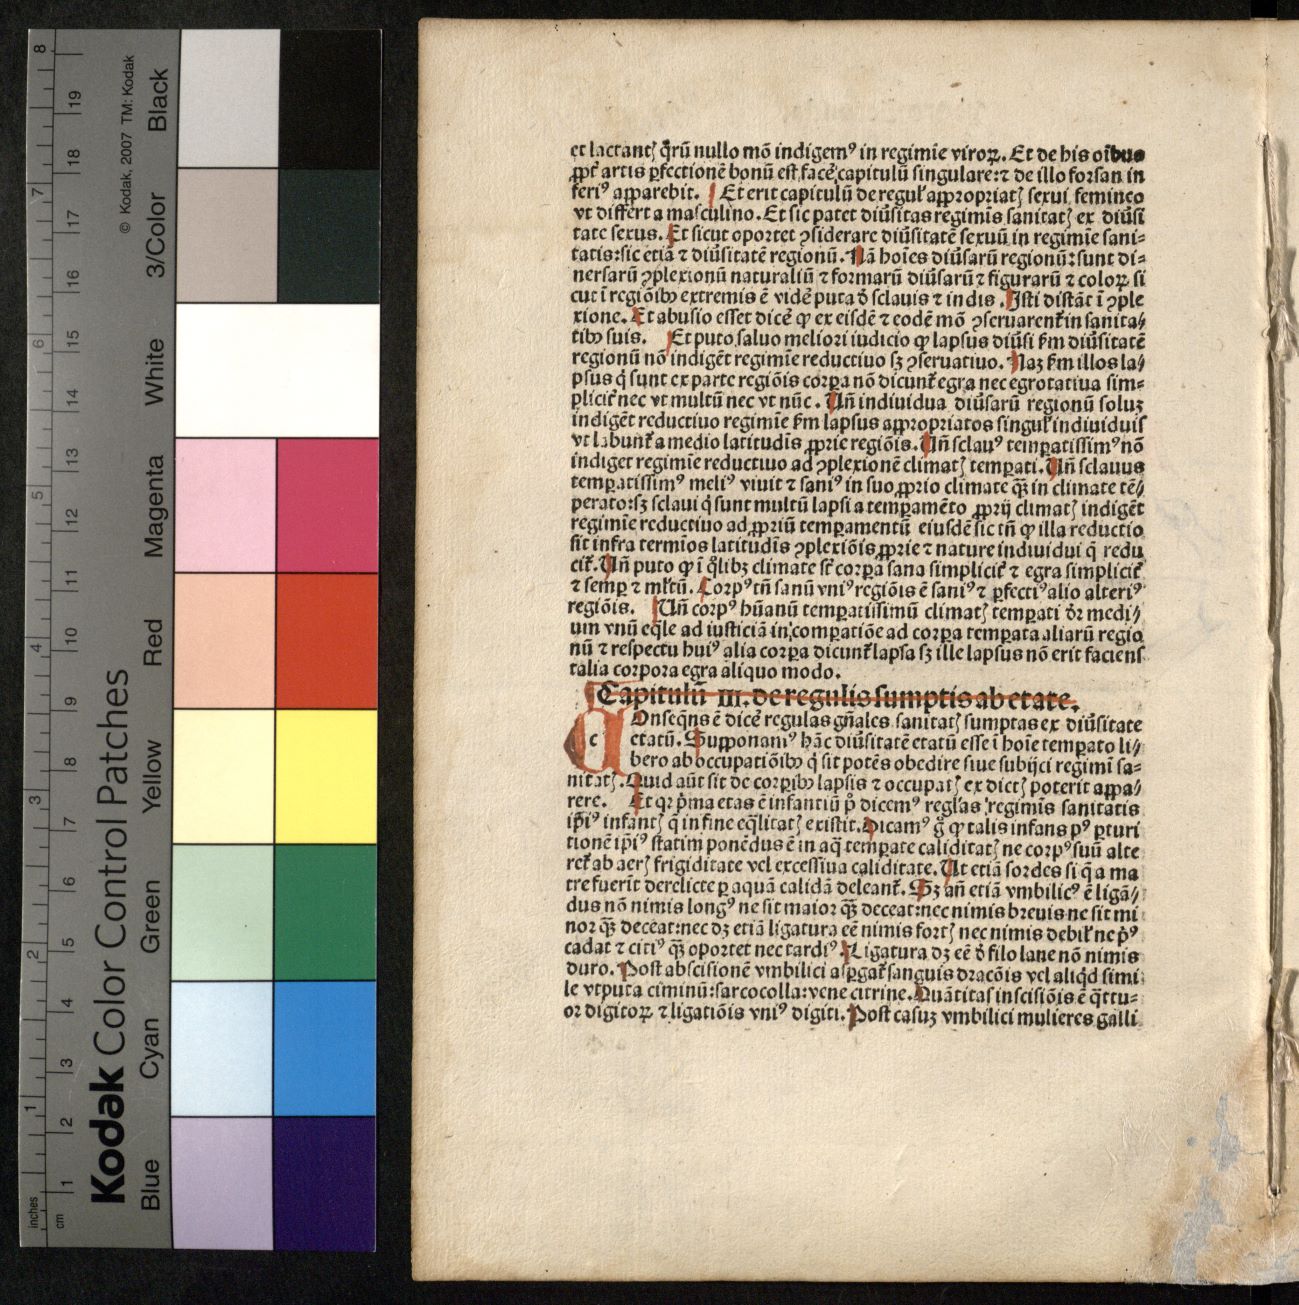 et lactantꝫ q̃rū nullo mō indigemꝰ in regimīe viroꝝ. Et de his oībus
ꝓpt̓ artis ꝑfectionē bonū est facẽ capitulū singulare: ⁊ de illo forsan in
feriꝰ apparebit. Et erit capitulū de regul̓ appropriatꝫ sexui femineo
vt differt a masculino. Et sic patet diũsitas regimīs sanitatꝫ ex diũsi
tate sexus. Et sicut oportet ꝯsiderare diũsitatē sexuū in regimīe sani-
tatis: sic etiā ⁊ diũsitatē regionū. Nā hoīes diũsarū regionū: sunt di-
uersarū ꝯplexionū naturaliū ⁊ formarū diũsarū ⁊ figurarū ⁊ coloꝝ si
cut ī regiōibꝰ extremis ē vidẽ puta ð sclauis ⁊ indis. Isti distāt ī ꝯple
xione. Et abusio esset dicẽ ꝙ ex eisdē ⁊ eodē mō ꝯseruarent̃ in sanita/
tibꝰ suis. Et puto saluo meliori iudicio ꝙ lapsus diũsi ẜm diũsitatē
regionū nō indigēt regimīe reductiuo sꝫ ꝯseruatiuo. Naꝫ ẜm illos la/
psus q̇ sunt ex parte regiōis corꝑa nō dicunt̃ egra nec egrotatiua sim-
plicit̃ nec vt multū nec vt nūc. Uñ indiuidua diũsarū regionū soluꝫ
indigēt reductiuo regimīe ẜm lapsus appropriatos singul̓ indiuiduis
vt labunt̃ a medio latitudīs ꝓprie regiōis. Uñ sclauꝰ temꝑatissimꝰ nō
indiget regimīe reductiuo ad ꝯplexionē climatꝫ temꝑati. Uñ sclauus
temꝑatissimꝰ meliꝰ viuit ⁊ saniꝰ in suo ꝓprio climate q̄ꝫ in climate tē/
perato: sꝫ sclaui q̇ sunt multū lapsi a temꝑamēto ꝓprij climatꝫ indigēt
regimīe reductiuo ad ꝓpriū temꝑamentū eiusdē sic tñ ꝙ illa reductio
sit infra termīos latitudīs ꝯplexiōis ꝓprie ⁊ nature indiuidui q̄ redu
cit̃. Uñ puto ꝙ ī q̇libꝫ climate st̃ corꝑa sana simplicit̃ ⁊ egra simplicit̃
⁊ semꝑ ⁊ ml̓tū. Corpꝰ tñ sanū vniꝰ regiōis ē saniꝰ ⁊ ꝑfectiꝰ alio alteriꝰ
regiōis. Uñ corpꝰ hūanū temꝑatissimū climatꝫ temꝑati ðr medi/
um vnū eq̄le ad iusticiā in comꝑatiōe ad corꝑa temꝑata aliarū regio
nū ⁊ respectu huiꝰ alia corꝑa dicunt̃ lapsa sꝫ ille lapsus nō erit faciens
talia corpora egra aliquo modo.
Capitulū III. de regulis sumptis ab etate.
c Onseq̄ns ē dicẽ regulas gñales sanitatꝫ sumptas ex diũsitate
etatū. Supponamꝰ hāc diũsitatē etatū esse ī hoīe temꝑato li/
bero ab occupatiōibꝰ q̇ sit potēs obedire siue subijci regimī sa-
nitatꝫ. Quid aūt sit de corꝑibꝰ lapsis ⁊ occupatꝫ ex dictꝫ poterit appa/
rere. Et qꝛ p̄ma etas ē infantiū p̊ dicemꝰ regl̓as regimīs sanitatis
ip̄iꝰ infantꝫ q̄ in fine eq̄litatꝫ existit. Dicamꝰ g̊ ꝙ talis infans pꝰ ꝑturi
tionē ip̄iꝰ statim ponēdus ē in aq̄ temꝑate caliditatꝫ ne corpꝰ suū alte
ret̃ ab aerꝫ frigiditate vel excessiua caliditate. Ut etiā sordes si q̄ a ma
tre fuerīt derelicte ꝑ aquā calidā deleant̃. Sꝫ añ etiā vmbilicꝰ ē ligā/
dus nō nimis longꝰ ne sit maior q̄ꝫ deceat: nec nimis breuis ne sit mi
nor q̄ꝫ deceat: nec dꝫ etiā ligatura eē nimis fortꝫ nec nimis debil̓ ne p̊ꝰ
cadat ⁊ citiꝰ q̄ꝫ oportet nec tardiꝰ. Ligatura dꝫ eē ð filo lane nō nimis
duro. Post abscisionē vmbilici asꝑgat̃ sanguis dracōis vel aliq̇d simi
le vtputa ciminū: sarcocolla: vene citrine. Quātitas inscisiōis ē q̄ttu-
or digitoꝝ ⁊ ligatiōis vniꝰ digiti. Post casuꝫ vmbilici mulieres galli
Kodak Color Control Patches
© Kodak, 2007 TM: Kodak
Blue Cyan Green Yellow Red Magenta White 3/Color Black
inches 1 2 3 4 5 6 7 8
cm 1 2 3 4 5 6 7 8 9 10 11 12 13 14 15 16 17 18 19